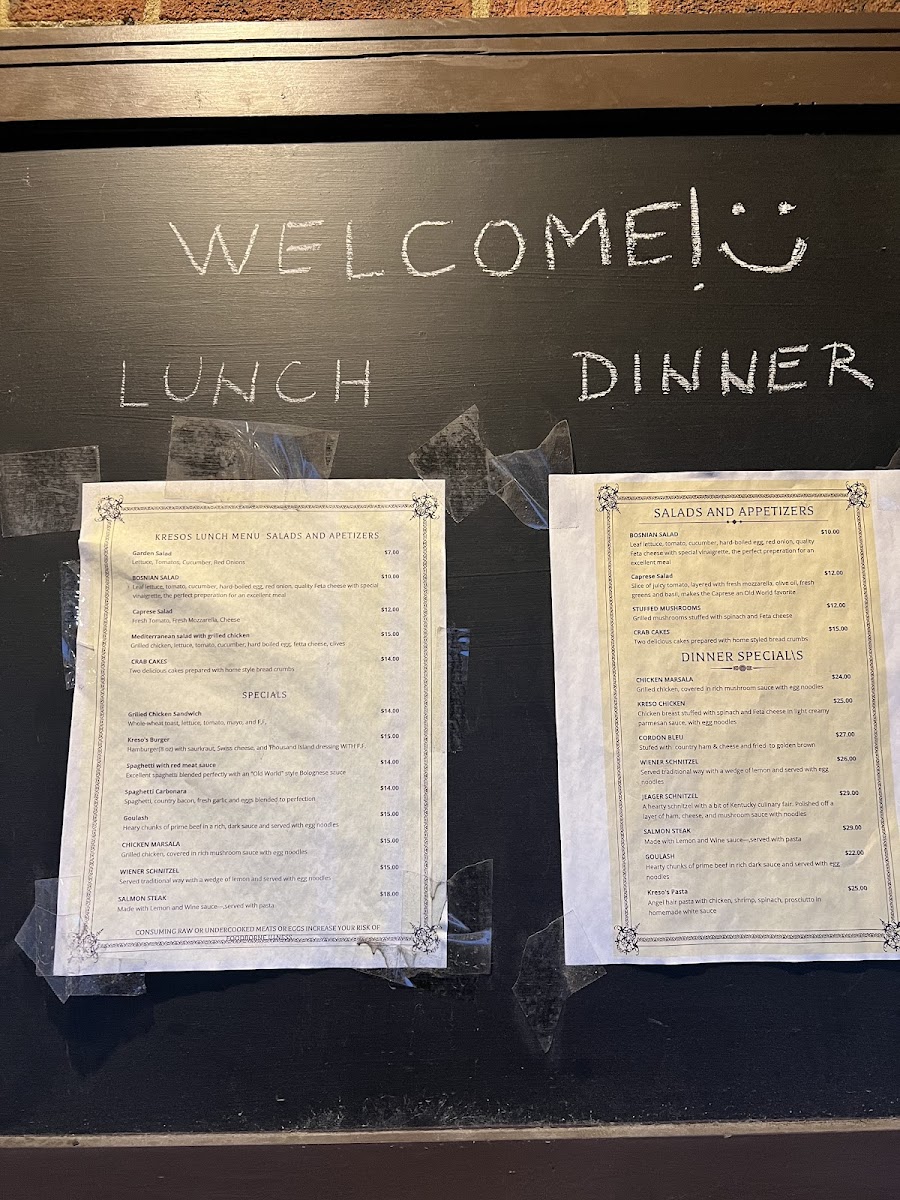 WELCOME!
LUNCH
DINNER
KRESOS LUNCH MENU SALADS AND APETIZERS
Garden Salad $7.00
Lettuce, Tomatos, Cucumber, Red Onions
BOSNIAN SALAD $10.00
Leaf lettuce, tomato, cucumber, hard-boiled egg, red onion, quality Feta cheese with special
vinaigrette, the perfect preparation for an excellent meal
Caprese Salad $12.00
Fresh Tomato, Fresh Mozzarella, Cheese
Mediterranean salad with grilled chicken $15.00
Grilled chicken, lettuce, tomato, cucumber, hard boiled egg, fetta cheese, olives
CRAB CAKES $14.00
Two delicious cakes prepared with home style bread crumbs
SPECIALS
Grilled Chicken Sandwich $14.00
Whole-wheat toast, lettuce, tomato, mayo, and F.F.
Kreso's Burger $15.00
Hamburger(8 oz) with saurkraut, Swiss cheese, and Thousand Island dressing WITH F.F.
Spaghetti with red meat sauce $14.00
Excellent spaghetti blended perfectly with an "Old World" style Bolognese sauce
Spaghetti Carbonara $14.00
Spaghetti, country bacon, fresh garlic and eggs blended to perfection
Goulash $15.00
Heary chunks of prime beef in a rich, dark sauce and served with egg noodles
CHICKEN MARSALA $15.00
Grilled chicken, covered in rich mushroom sauce with egg noodles
WIENER SCHNITZEL $15.00
Served traditional way with a wedge of lemon and served with egg noodles
SALMON STEAK $18.00
Made with Lemon and Wine sauce—,served with pasta
CONSUMING RAW OR UNDERCOOKED MEATS OR EGGS INCREASE YOUR RISK OF
FOODBORNE ILLNESS
SALADS AND APPETIZERS
BOSNIAN SALAD $10.00
Leaf lettuce, tomato, cucumber, hard-boiled egg, red onion, quality
Feta cheese with special vinaigrette, the perfect preparation for an
excellent meal
Caprese Salad $12.00
Slice of juicy tomato, layered with fresh mozzarella, olive oil, fresh
greens and basil, makes the Caprese an Old World favorite
STUFFED MUSHROOMS $12.00
Grilled mushrooms stuffed with spinach and Feta cheese
CRAB CAKES $15.00
Two delicious cakes prepared with home styled bread crumbs
DINNER SPECIAL\S
CHICKEN MARSALA $24.00
Grilled chicken, covered in rich mushroom sauce with egg noodles
KRESO CHICKEN $25.00
Chicken breast stuffed with spinach and Feta cheese in light creamy
parmesan sauce, with egg noodles
CORDON BLEU $27.00
Stufed with country ham & cheese and fried to golden brown
WIENER SCHNITZEL $26.00
Served traditional way with a wedge of lemon and served with egg
noodles
JEAGER SCHNITZEL $29.00
A hearty schnitzel with a bit of Kentucky culinary fair. Polished off a
layer of ham, cheese, and mushroom sauce with noodles
SALMON STEAK $29.00
Made with Lemon and Wine sauce—,served with pasta
GOULASH $22.00
Hearty chunks of prime beef in rich dark sauce and served with egg
noodles
Kreso's Pasta $25.00
Angel hair pasta with chicken, shrimp, spinach, prosciutto in
homemade white sauce